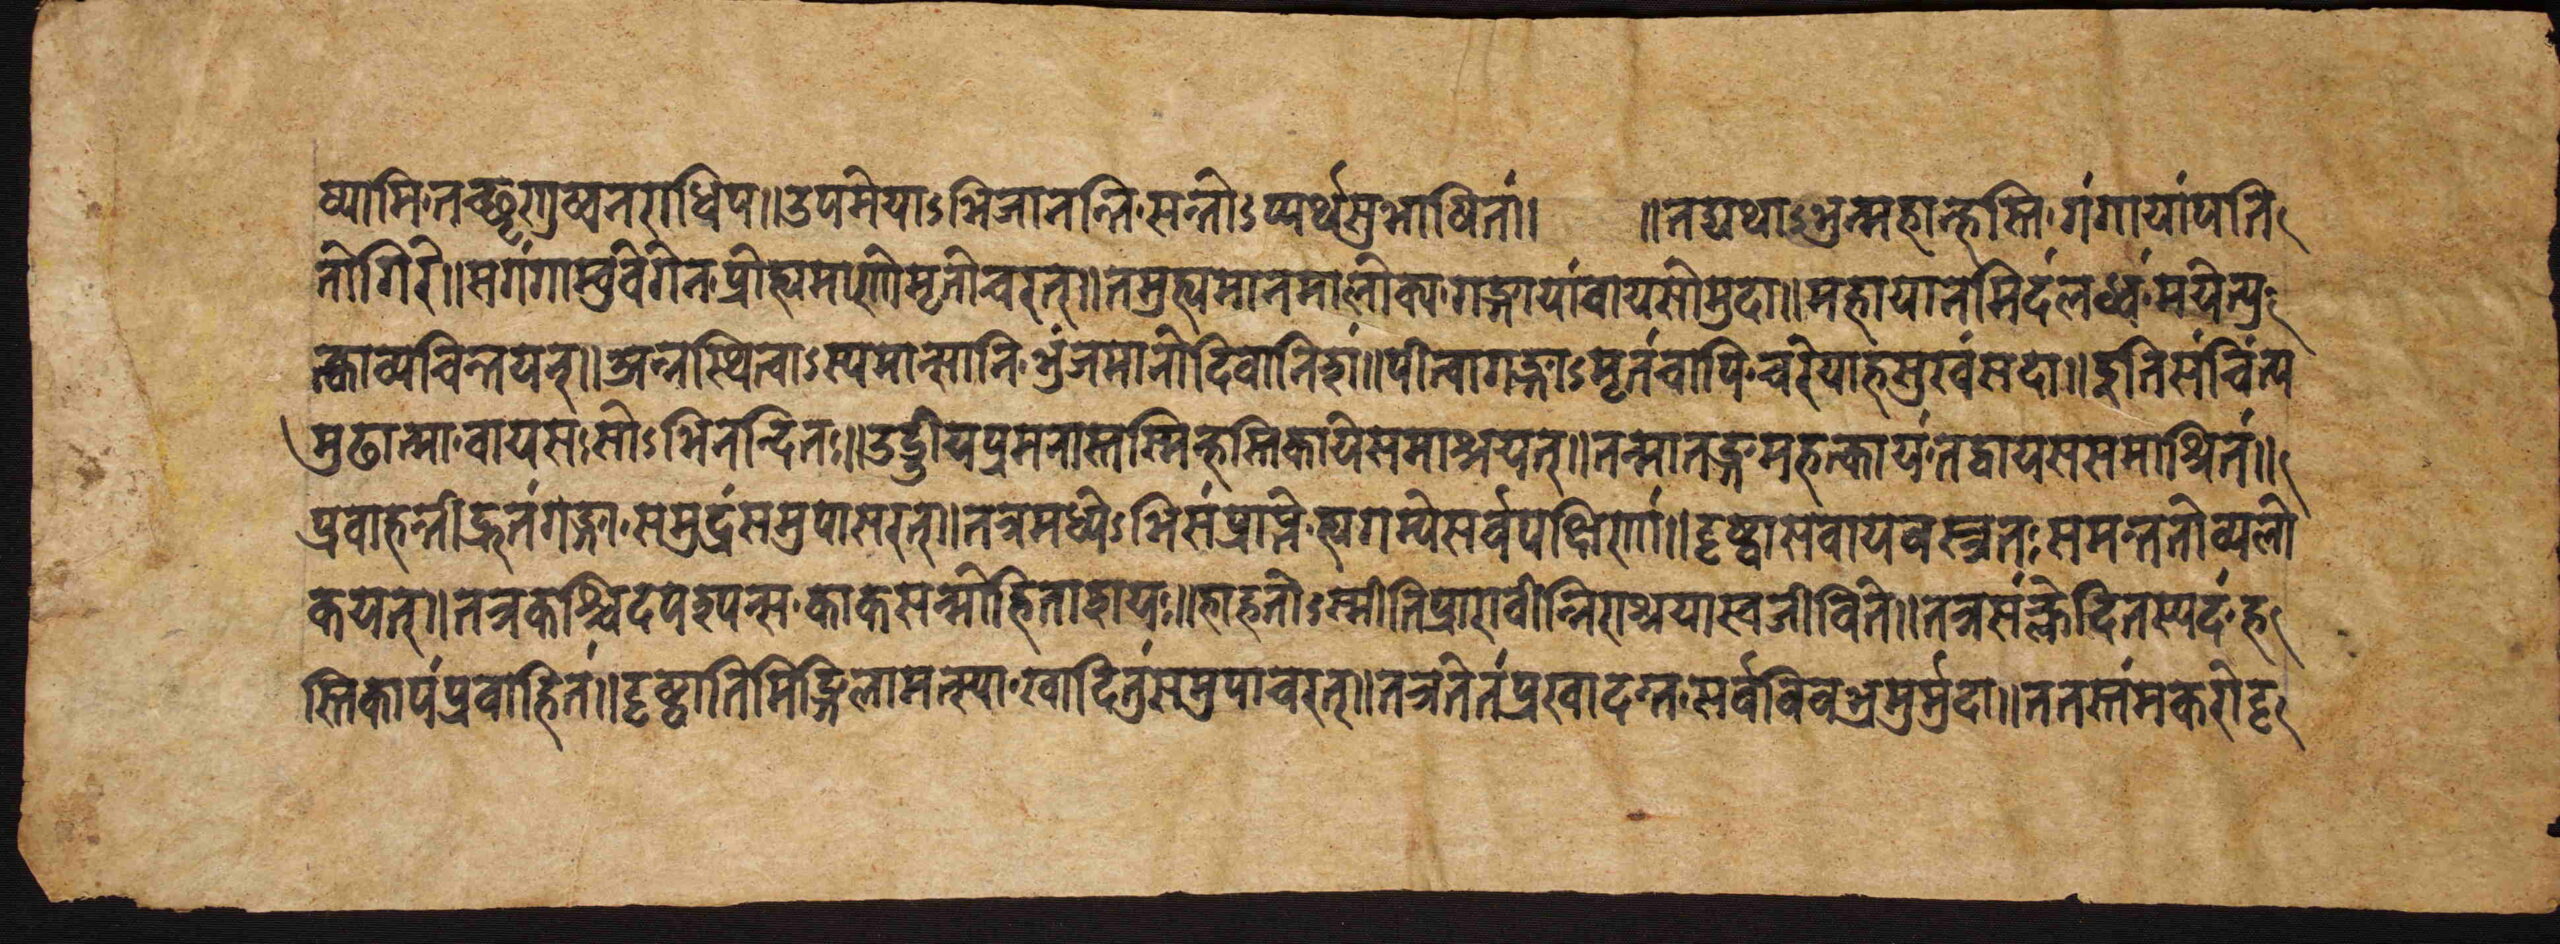 ष्यामि तच्छृणुष्व नराधिप॥ उपमेयाऽभिजानन्ति सन्तोऽप्यर्थसुभाषितां॥ ॥तद्यथाऽभुन्महान्हस्ति गंगायां पति
तो गिरे॥ स गंगाम्वुवेगेन प्रोह्यमाणो मृतोचरत्॥ तमुह्यमानमालोक्य गङ्गायां वायसो मुदा॥ महायानमिदं लध्वं मयेत्यु
त्काव्यचिन्तयत्॥ अत्र स्थित्वाऽस्य मान्सानि भुंजमानो दिवानिशं॥ पीत्वा गङ्गाऽमृतं चापि चरेयाहं सुखं सदा॥ इति संचिंत्य
मुढात्मा वायसः सोऽभिनन्दितः॥ उड्डीय प्रमनास्तस्मिन्हस्तिकाये समाश्रयत्॥ तन्मातङ्गमहत्कायं तद्वायससमाश्रितं॥
प्रवाहन्ती द्रुतं गङ्गा समुद्रं समुपासरत्॥ तत्र मध्येऽभिसंप्राप्ते ह्यगम्ये सर्वपक्षिणां॥ दृष्ट्वा स वायसस्त्रतः समन्ततो व्यलो
कयत्॥ तत्र कश्चिदपश्यन्स काक सन्मोहिताशयः॥ हा हतोऽस्मीति प्रारावीन्निराश्रया स्वजीविते॥ तत्र संक्लेदितस्पदं ह
स्तिकायं प्रवाहितं॥ दृष्ट्वा तिमिङ्गिला मत्स्या खादितुं समुपाचरत्॥ तत्र ते तं प्रखादन्त सर्वे विवभ्रमुर्मुदा॥ ततस्तं मकरो दृ